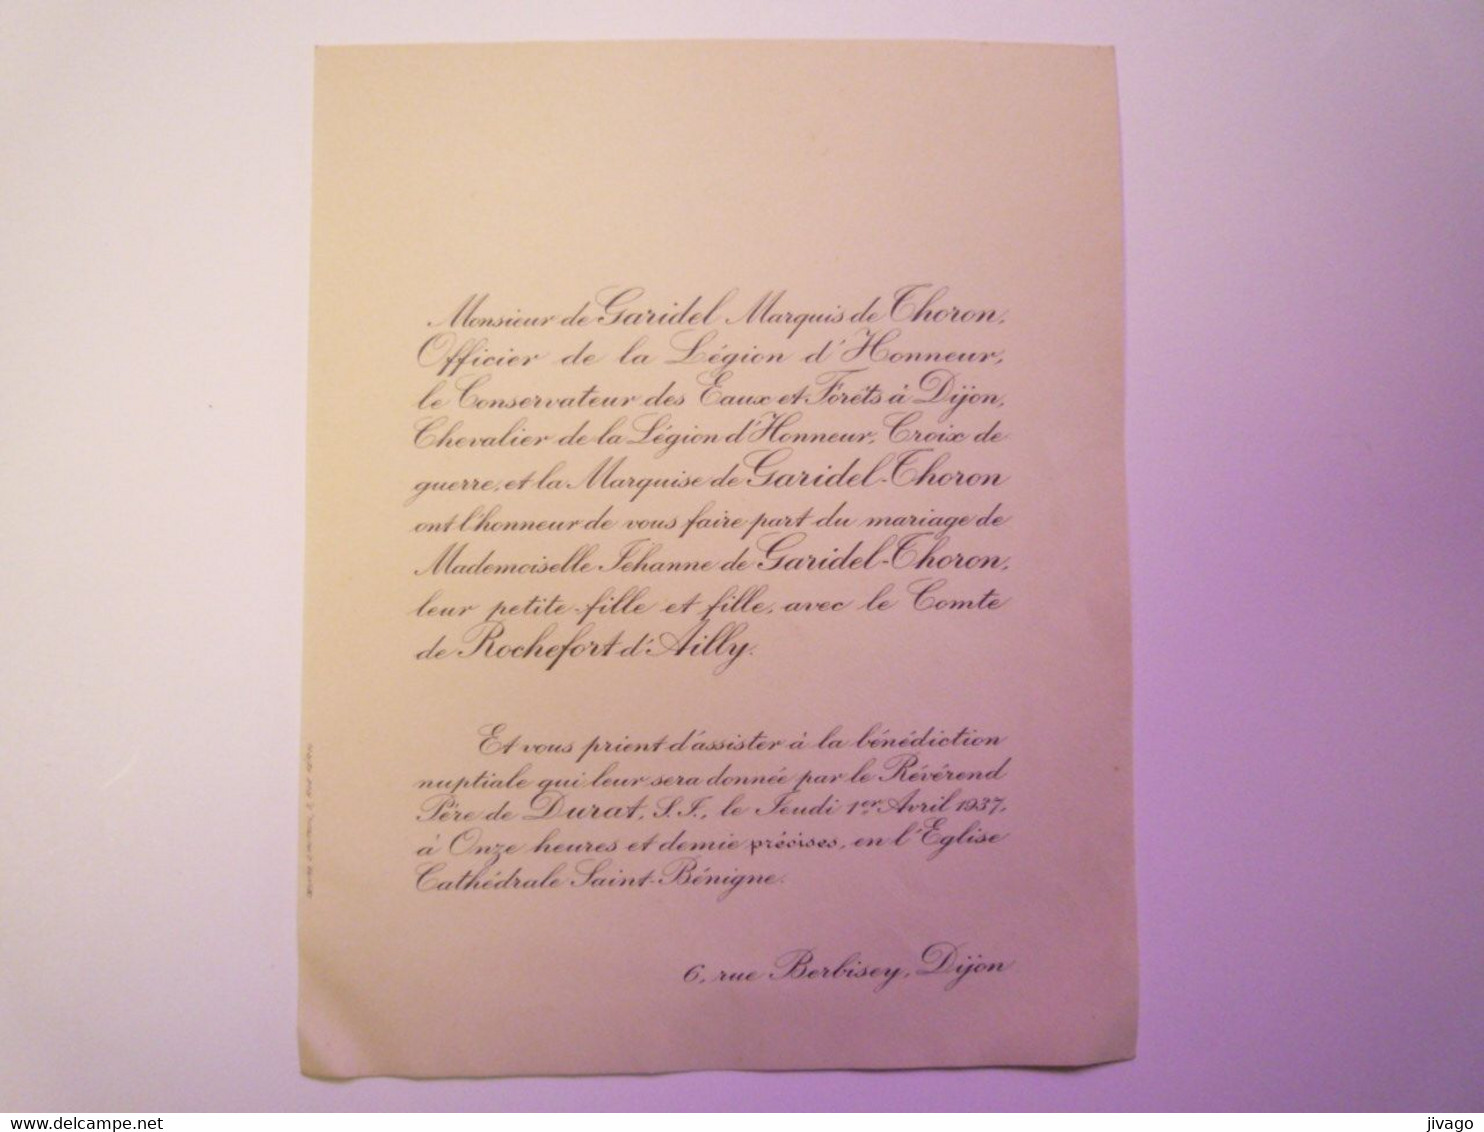 Monsieur de Garidel Marquis de Thoron,
Officier de la Légion d'Honneur,
le Conservateur des Eaux et Forêts à Dijon,
Chevalier de la Légion d'Honneur, Croix de
guerre, et la Marquise de Garidel-Thoron
ont l'honneur de vous faire part du mariage de
Mademoiselle Jéhanne de Garidel-Thoron,
leur petite-fille et fille, avec le Comte
de Rochefort d'Ailly.
Et vous prient d'assister à la bénédiction
nuptiale qui leur sera donnée par le Révérend
Père de Durat, S.J., le Jeudi 1er Avril 1937,
à Onze heures et demie précises, en l'Eglise
Cathédrale Saint-Bénigne.
6, rue Berbisey, Dijon
www.delcampe.net
jivago